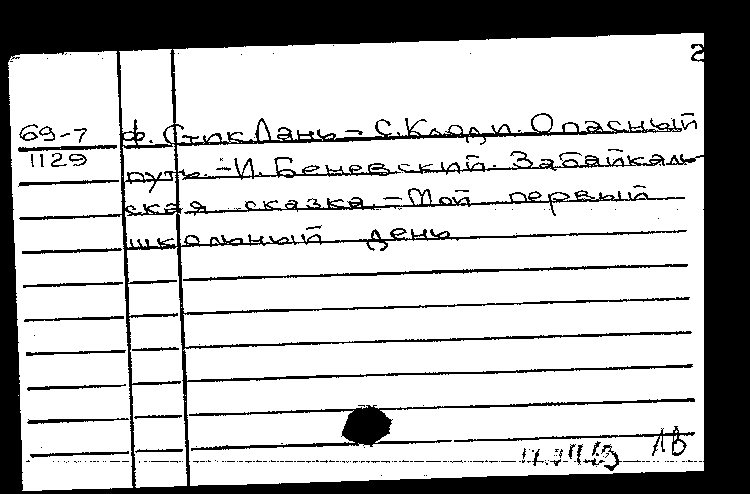 2
69-7 Ф. Стик. Лань – С. Клоди. Опасный
1129 путь. – И. Беневский. Забайкаль-
ская сказка. – Мой первый
школьный день
ЛВ